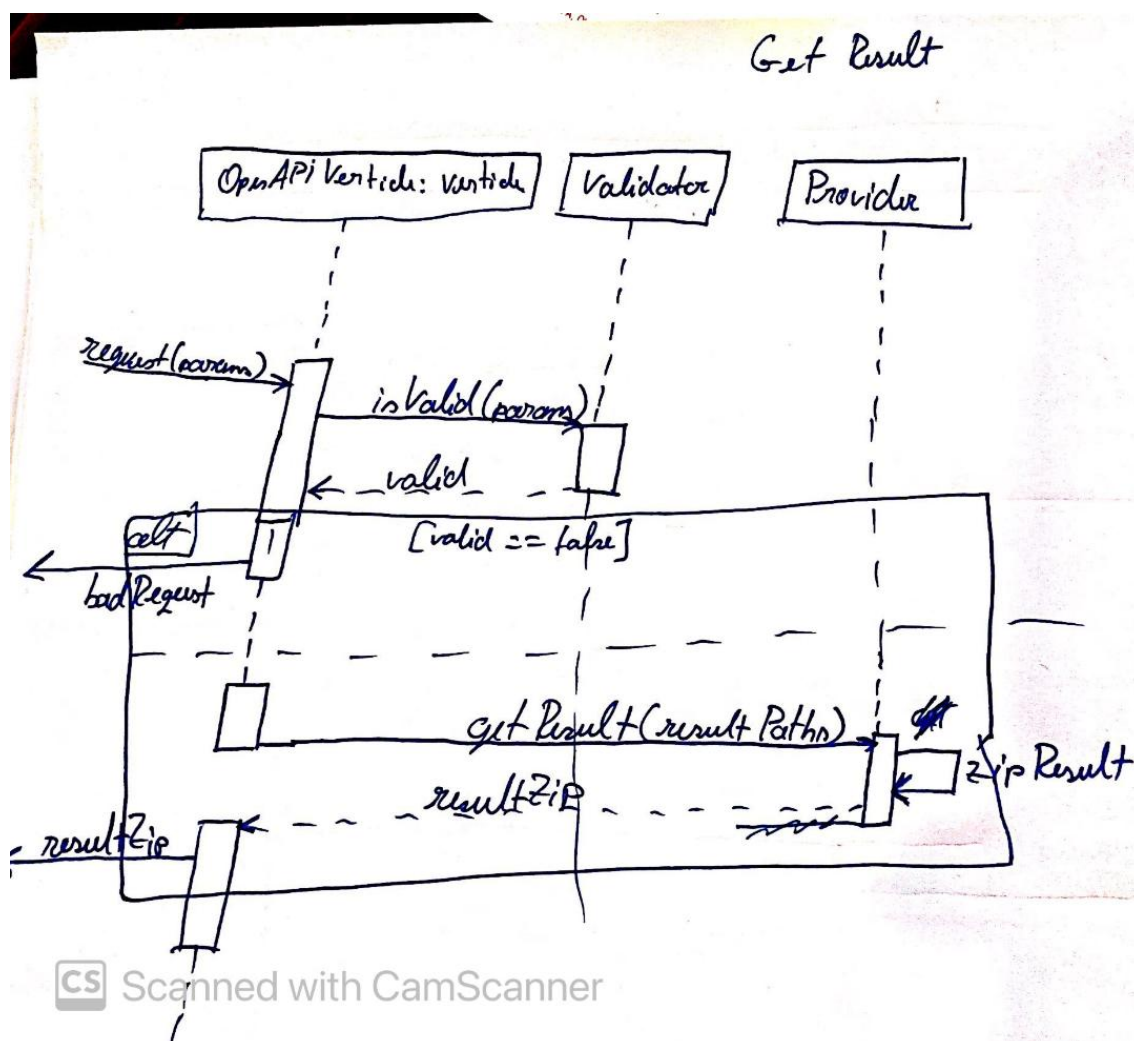 Get Result
OpenAPi Verticle: Verticle
Validator
Provider
request(params)
isValid(params)
valid
alt
[valid == false]
badRequest
getResult(resultPaths)
zipResult
resultZip
resultZip
CS Scanned with CamScanner